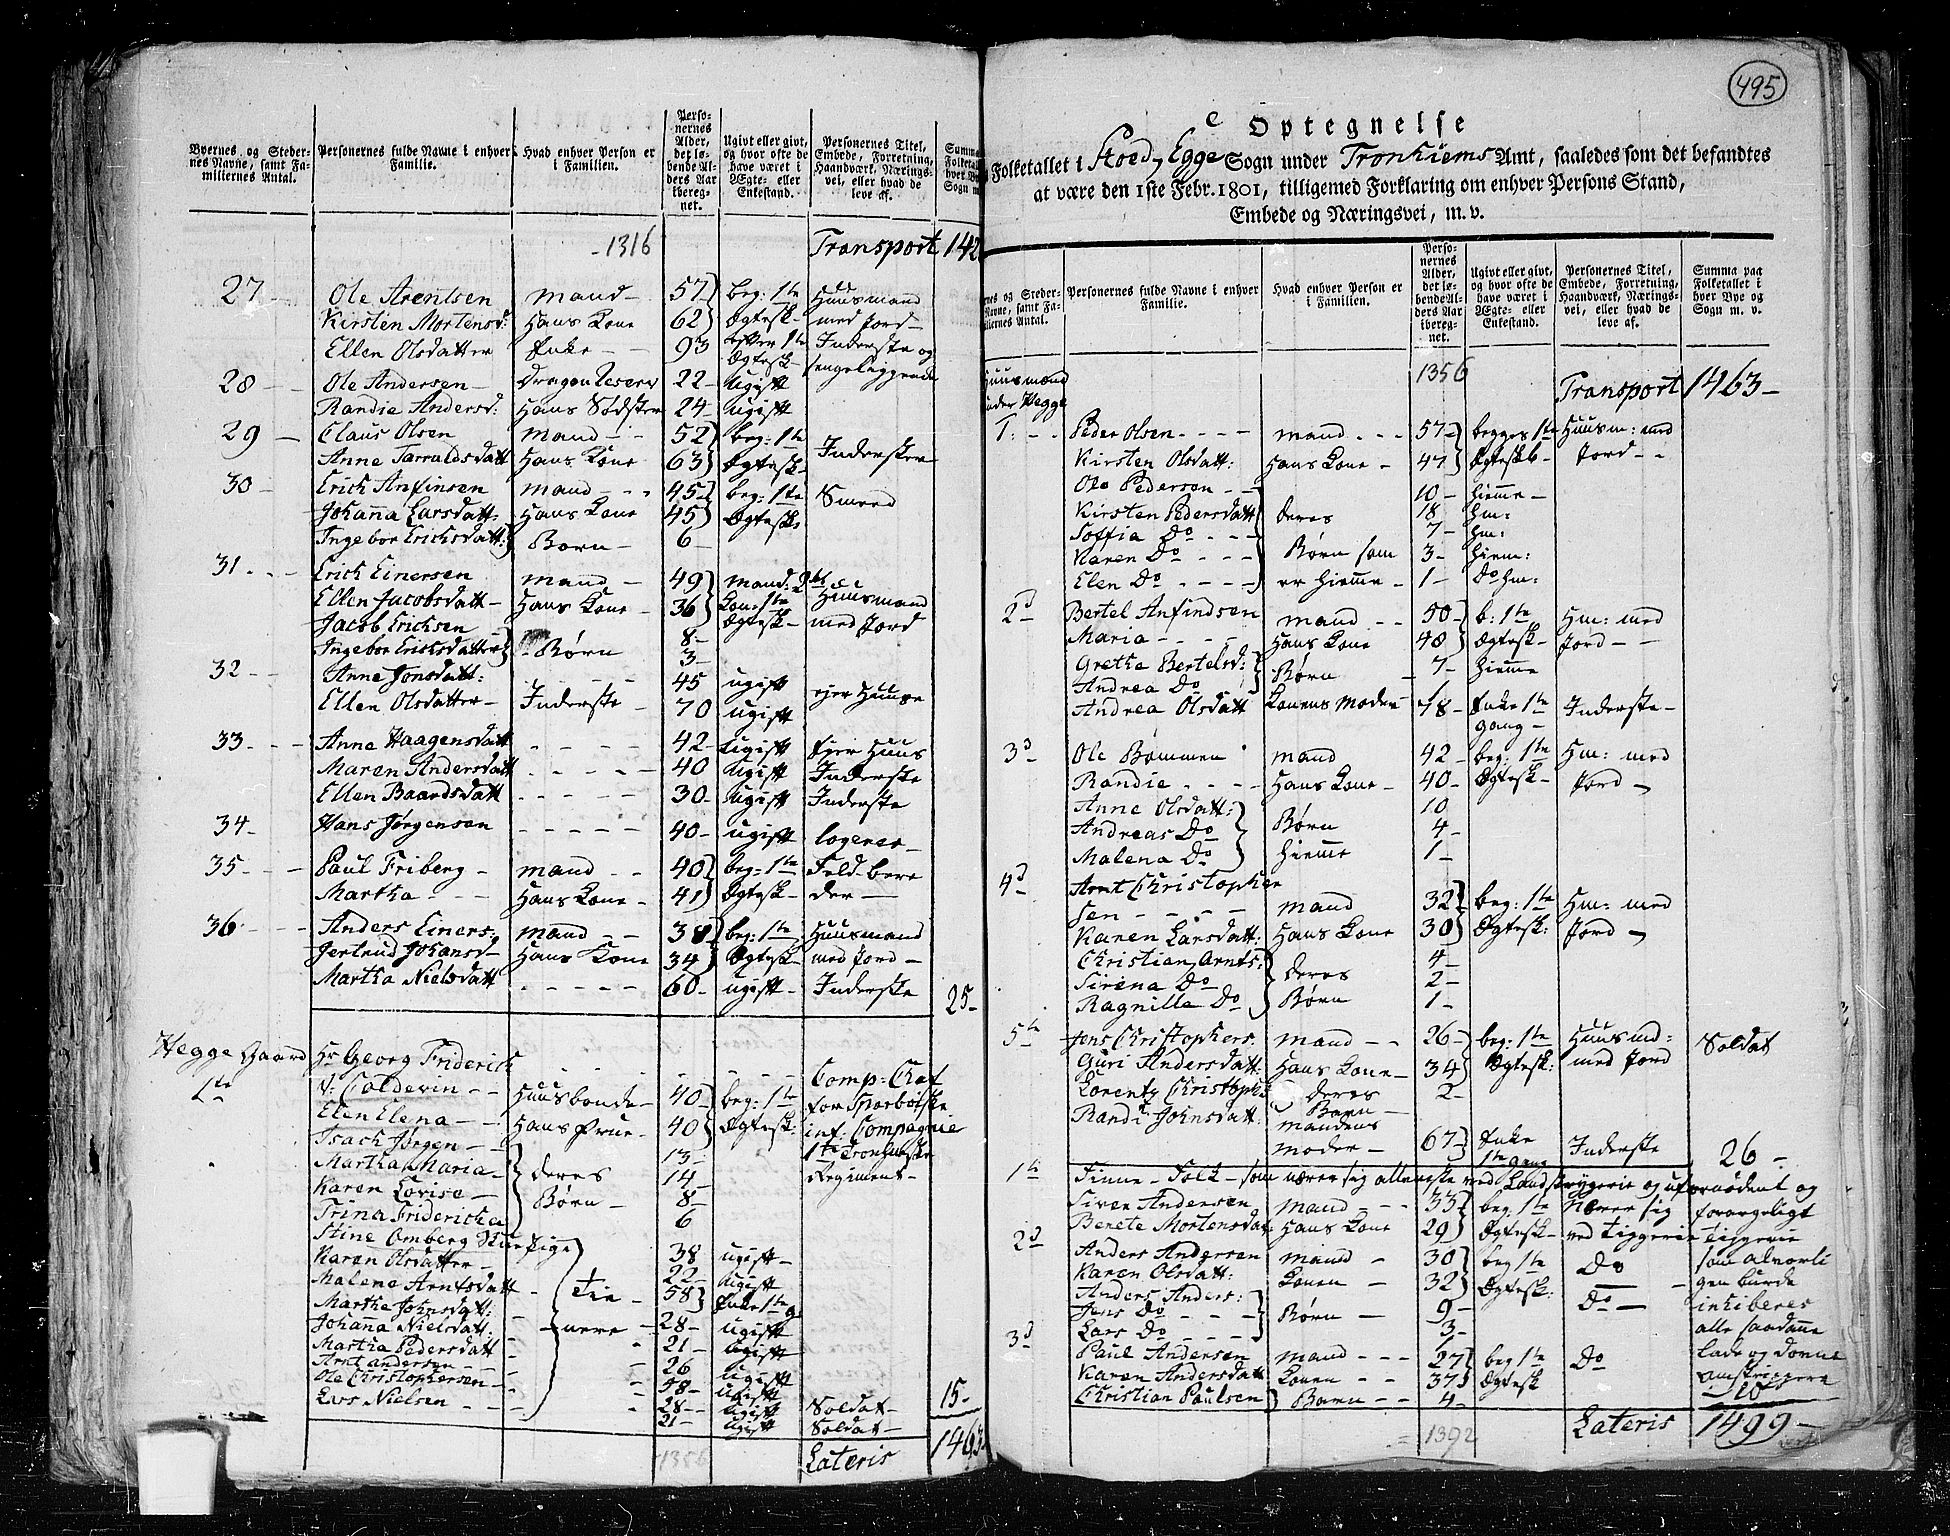 Byernes og Stedernes Navne, samt Familiernes Antal. | Personernes fulde Navne i enhver Familie. | Hvad enhver Person er i Familien. | Personernes Alder, det løbende Alders Aar iberegnet. | Ugivt eller givt, og hvor ofte de have været i Ægte- eller Enkestand. | Personernes Titel, Embede, Forretning, Haandværk, Næringsvei, eller hvad de leve af.
1316 Transport 142
27 Ole Arentsen mand 57 beg: 1te Huusmand
Kirsten Mortensd: Hans Kone 62 Ægtesk- med Jord
Ellen Olsdatter Enke 93 efter 1te Ægtesk- Inderste og sengeliggende
28 Ole Andersen Dragon 22 ugift
Randie Andersd: Hans Sødster 24 ugift
29 Claus Olsen mand 52 beg: 1te
Anne Tarraldsdatt Hans Kone 63 Ægtesk- Inderster
30 Erich Anfinsen mand 45 beg: 1te Smeed
Johaña Larsdatt: Hans Kone 45 Ægtesk:
Ingebor Erichsdatt: Barn 6
31 Erich Einersen mand 49 mand: 2det Huusmand
Ellen Jacobsdatt Hans Kone 36 Kon: 1te Ægtesk- med Jord
Jacob Erichsen 8
Ingebor Erichsdatter Børn 3
32 Anne Jonsdatt: 45 ugift ejer Huuse
Ellen Olsdatter Inderste 70 ugift
33 Anne Haagensdatt 42 Ugift Ejer Huus
Maren Andersdatt 40 Ugift Inderste
Ellen Baardsdatt 30 Ugift Inderste
34 Hans Jørgensen 40 ugift logerer
35 Paul Friberg mand 40 beg: 1te Feld bere
Martha Hans Kone 41 Ægtesk- der
36 Anders Einers: mand 38 beg: 1te Huusmand
Gertrud Johansd Hans Kone 34 Ægtesk- med Jord
Martha Nielsdatt 60 ugift Inderste 25
Hegge Gaard Hr Georg Friderich
1te v: Coldevin Huusbonde 40 beg: 1te Comp: Chef
Elen Elena Hans Frue 40 Ægtesk: for Sparboiske
Isach Jørgen 13 inf: Compagnie
Martha Maria deres 14 1te Tronhiemske Regiment
Karen Lovise Børn 8
Trina Fridericha 6
Stine Omberg Stue Pige 38 ugift
Karen Olsdatter 22 Ugift
Malene Arntsdatt Tie 58 Enke 1te g
Martha Johnsdatt: 28 ugift
Johaña Nielsdatt: nere 21 Ugift
Martha Pedersdatt 26 ugift
Arnt andersen 58 ugift
Ole Christophersen 28 Ugift Soldat 15
Lars Nielsen 21 ugift Soldat
1356 Lateris 1463
495
Optegnelse
Folketallet i Stoed, Egge Sogn under Tronhiems Amt, saaledes som det befandtes
at være den 1ste Febr. 1801, tilligemed Forklaring om enhver Persons Stand,
Embede og Næringsvei, m. v.
Personernes fulde Navne i enhver Familie. | Hvad enhver Person er i Familien. | Personernes Alder, det løbende Alders Aar iberegnet. | Ugivt eller givt, og hvor ofte de have været i Ægte- eller Enkestand. | Personernes Titel, Embede, Forretning, Haandværk, Næringsvei, eller hvad de leve af. | Summa paa Folketallet i hver Bye og Sogn m. v.
Huusmænd under Hegge 1356 Transport 1463
1 Peder Olsen mand 57 begges 1te Huusm: med
Kirsten Olsdatt: Hans Kone 47 Ægteskb Jord
Ole Pedersen 10 hieme
Kirsten Pedersdatt deres 18 hm:
Soffia Do 7 hm:
Karen Do Børn som 3 hiem:
Elen Do er hieme 1 Do hm:
2d Bertel Anfindsen mand 50 b: 1te Hm: med
Maria Hans Kone 48 Ægtesk- Jord
Gretha Bertelsd: Børn 7 hieme
Andrea Do
Andrea Olsdatt Konens Moder 78 Enke 1te Gang Inderste
3d Ole Bømmen mand 42 beg: 1te Hm: med
Randie Hans Kone 40 Ægtesk- Jord
Anne Olsdatt: 10
Andreas Do Børn 4
Malena Do hieme 1
4d Arnt Christopher
sen mand 32 beg: 1te Hm: med
Karen Larsdatt: Hans Kone 30 Ægtesk: Jord
Christian Arnts: 4
Sirena Do deres 2
Ragnilla Do Børn 1
5te Jens Christophers: mand 26 beg: 1te Huusmd: Soldat
Guri Andersdatt: Hans Kone 34 Ægtesk: med Jord
Lorentz Christoph: deres Barn 2
Randi Johnsdatt: mandens moder 67 Enke 1te Gang Inderste 26
1te Finne-Folk som nærer sig alleneste med Landstrygerie og ufornødent og
Siver Andersen mand 33 beg: 1te Nærer sig forargeligt
Berete Mortensdat Hans Kone 29 Ægtesk- ved Tiggerie Tiggerie
2d Anders Andersen mand 30 beg 1te Do som alvorli
Karen Olsdatt: Konen 32 Ægtesk: gen burde
Anders Anders: 9 Do inhiberes
Jens Do Børn 3 alle saadañe
Lars Do 1
3d Paul Andersen mand 27 beg 1te Do
Karen Andersdatt Konen 37 Ægtesk
Christian Paulsen Barn 4 10
1392 Lateris 1499